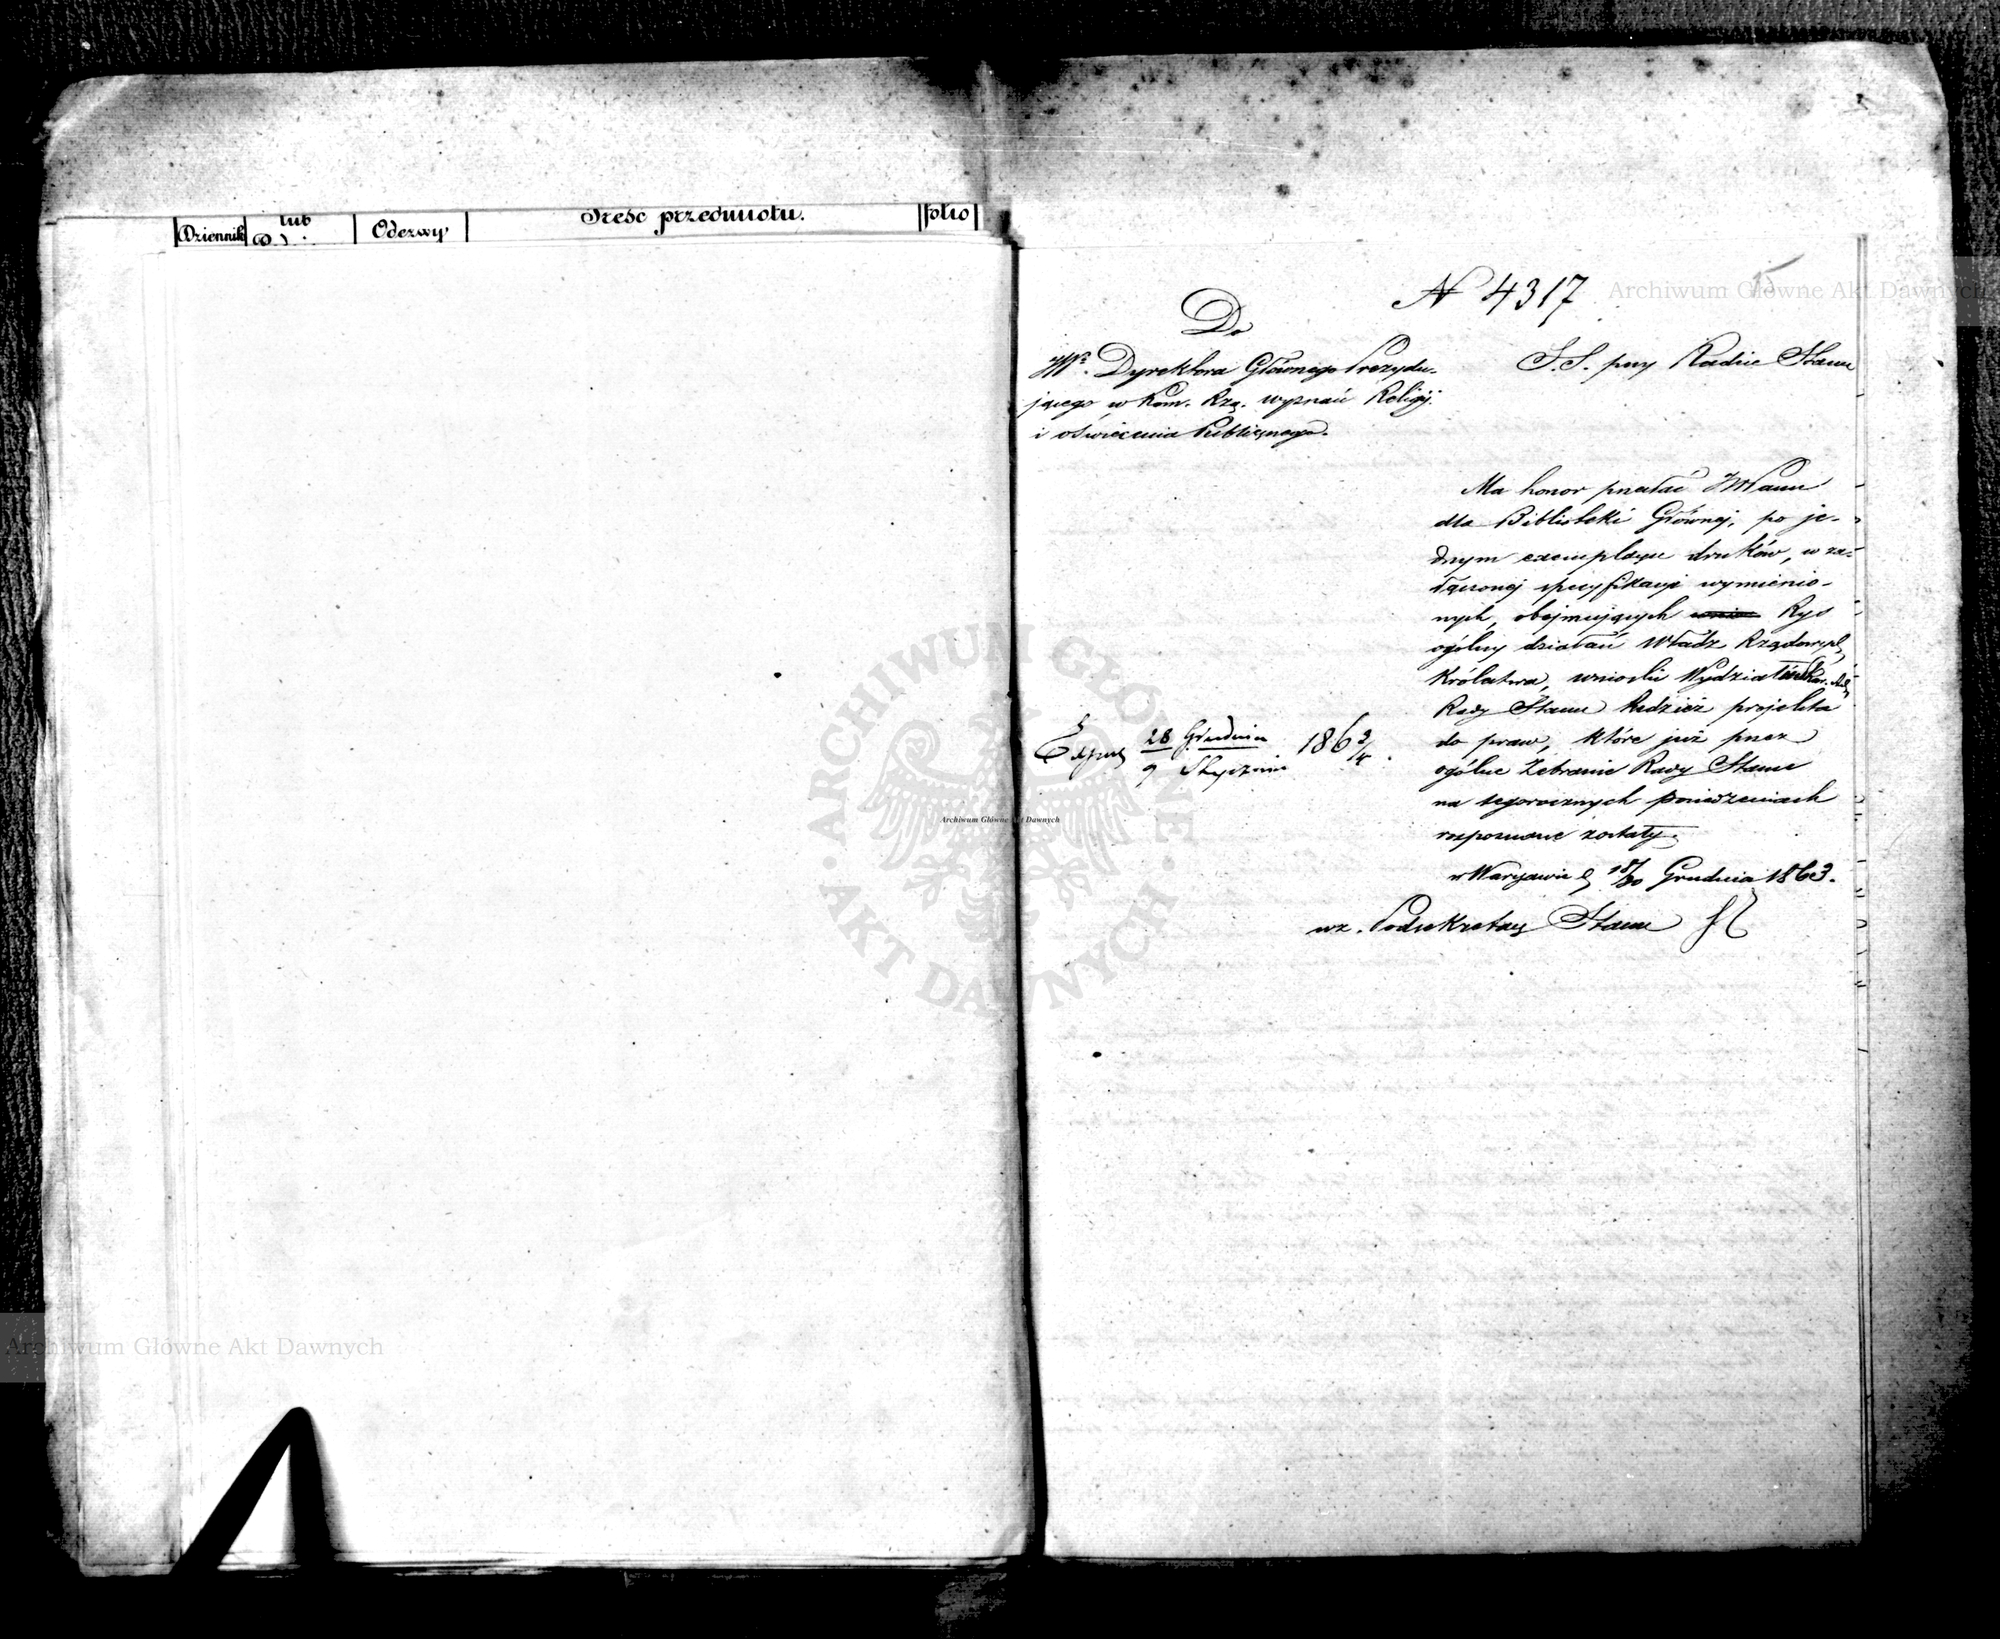 Dziennik
lub
Odezwy
Treść przedmiotu.
folio
15
N 4317
Do
JW°. Dyrektora Głównego Prezydu-
jącego w Kom. Rzą. wyznań Religij.
i oświecenia Publicznego.
S.S. przy Radzie Stanu
Ma honor przesłać JWPanu
dla Biblioteki Głównej, po je-
dnym exemplarzu druków, w za-
łączonej specyfikacyi wymienio-
nych, obejmujących Rys
ogólny działań Władz Rządowych
Królestwa, wnioski Wydziału
Rady Stanu tudzież projekta
do praw, które już przez
ogólne Zebranie Rady Stanu
na tegorocznych posiedzeniach
rozpoznane zostały.
w Warszawie d. 18/30 Grudnia 1863.
wz. Podsekretarz Stanu
28 Grudnia
9 Stycznia 1863/4.
Archiwum Główne Akt Dawnych
ARCHIWUM GŁÓWNE
AKT DAWNYCH
Archiwum Główne Akt Dawnych
Archiwum Główne Akt Dawnych